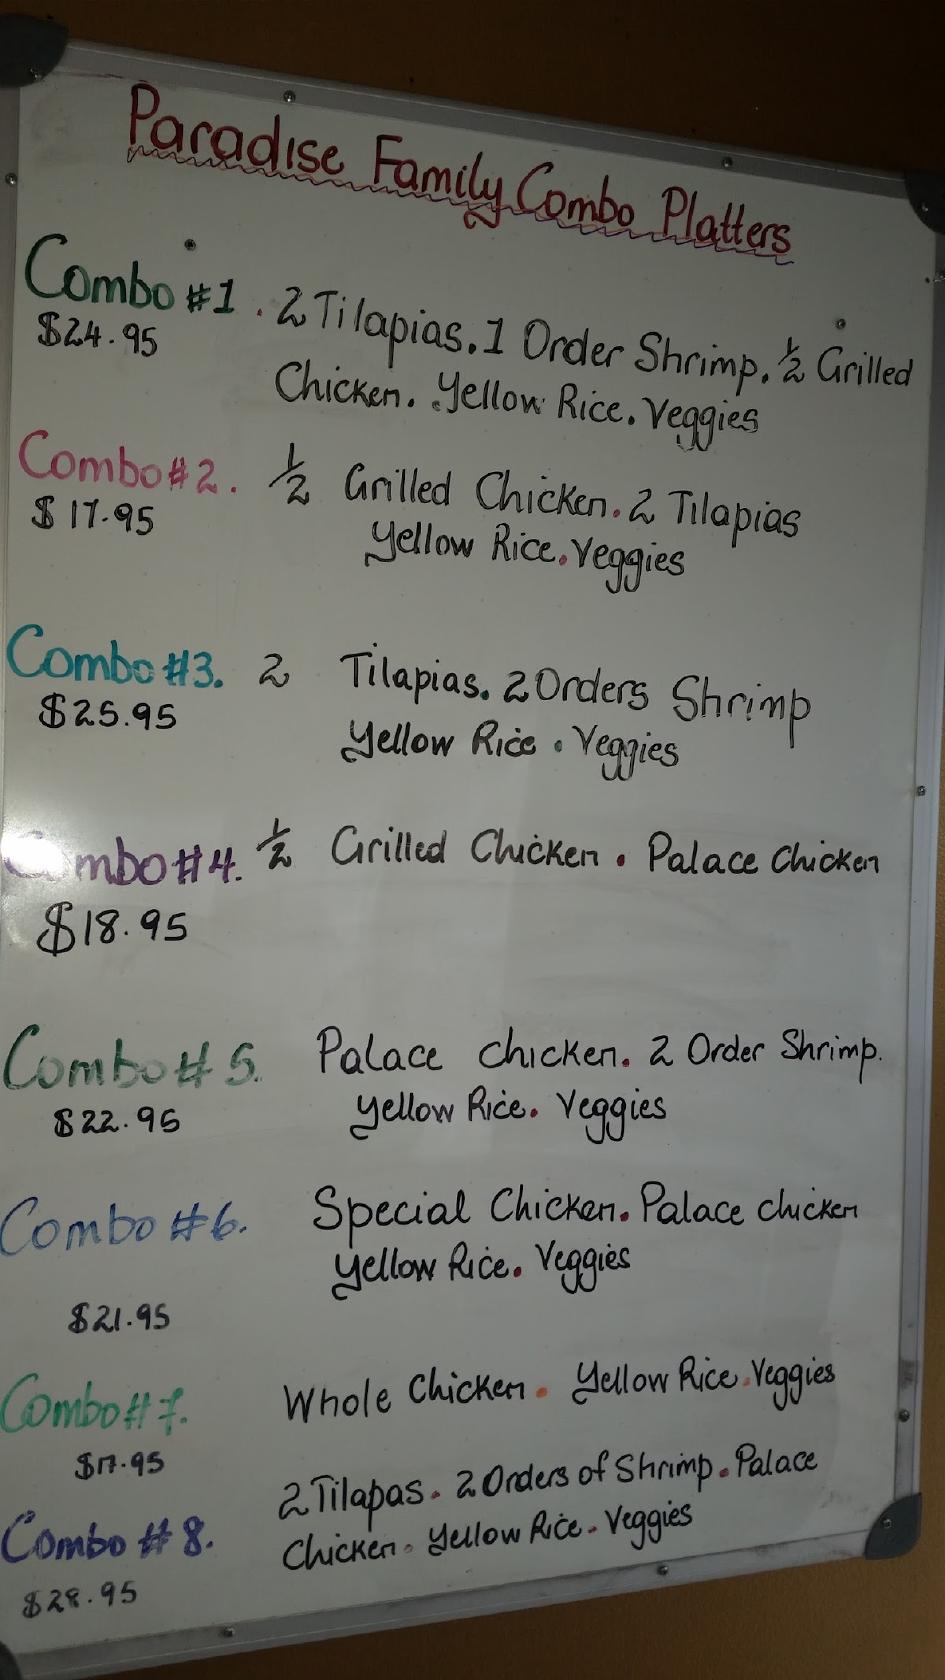 Paradise Family Combo Platters
Combo #1 . 2 Tilapias. 1 Order Shrimp. 1/2 Grilled
$24.95
Chicken. Yellow Rice. Veggies
Combo #2. 1/2 Grilled Chicken. 2 Tilapias
$17.95
Yellow Rice. Veggies
Combo #3. 2 Tilapias. 2 Orders Shrimp
$25.95
Yellow Rice . Veggies
Combo #4. 1/2 Grilled Chicken . Palace Chicken
$18.95
Combo # 5. Palace chicken. 2 Order Shrimp.
$22.95
Yellow Rice. Veggies
Combo #6. Special Chicken. Palace chicken
Yellow Rice. Veggies
$21.95
Combo #7. Whole Chicken . Yellow Rice. Veggies
$17.95
2 Tilapas. 2 Orders of Shrimp. Palace
Combo # 8. Chicken. Yellow Rice. Veggies
$28.95